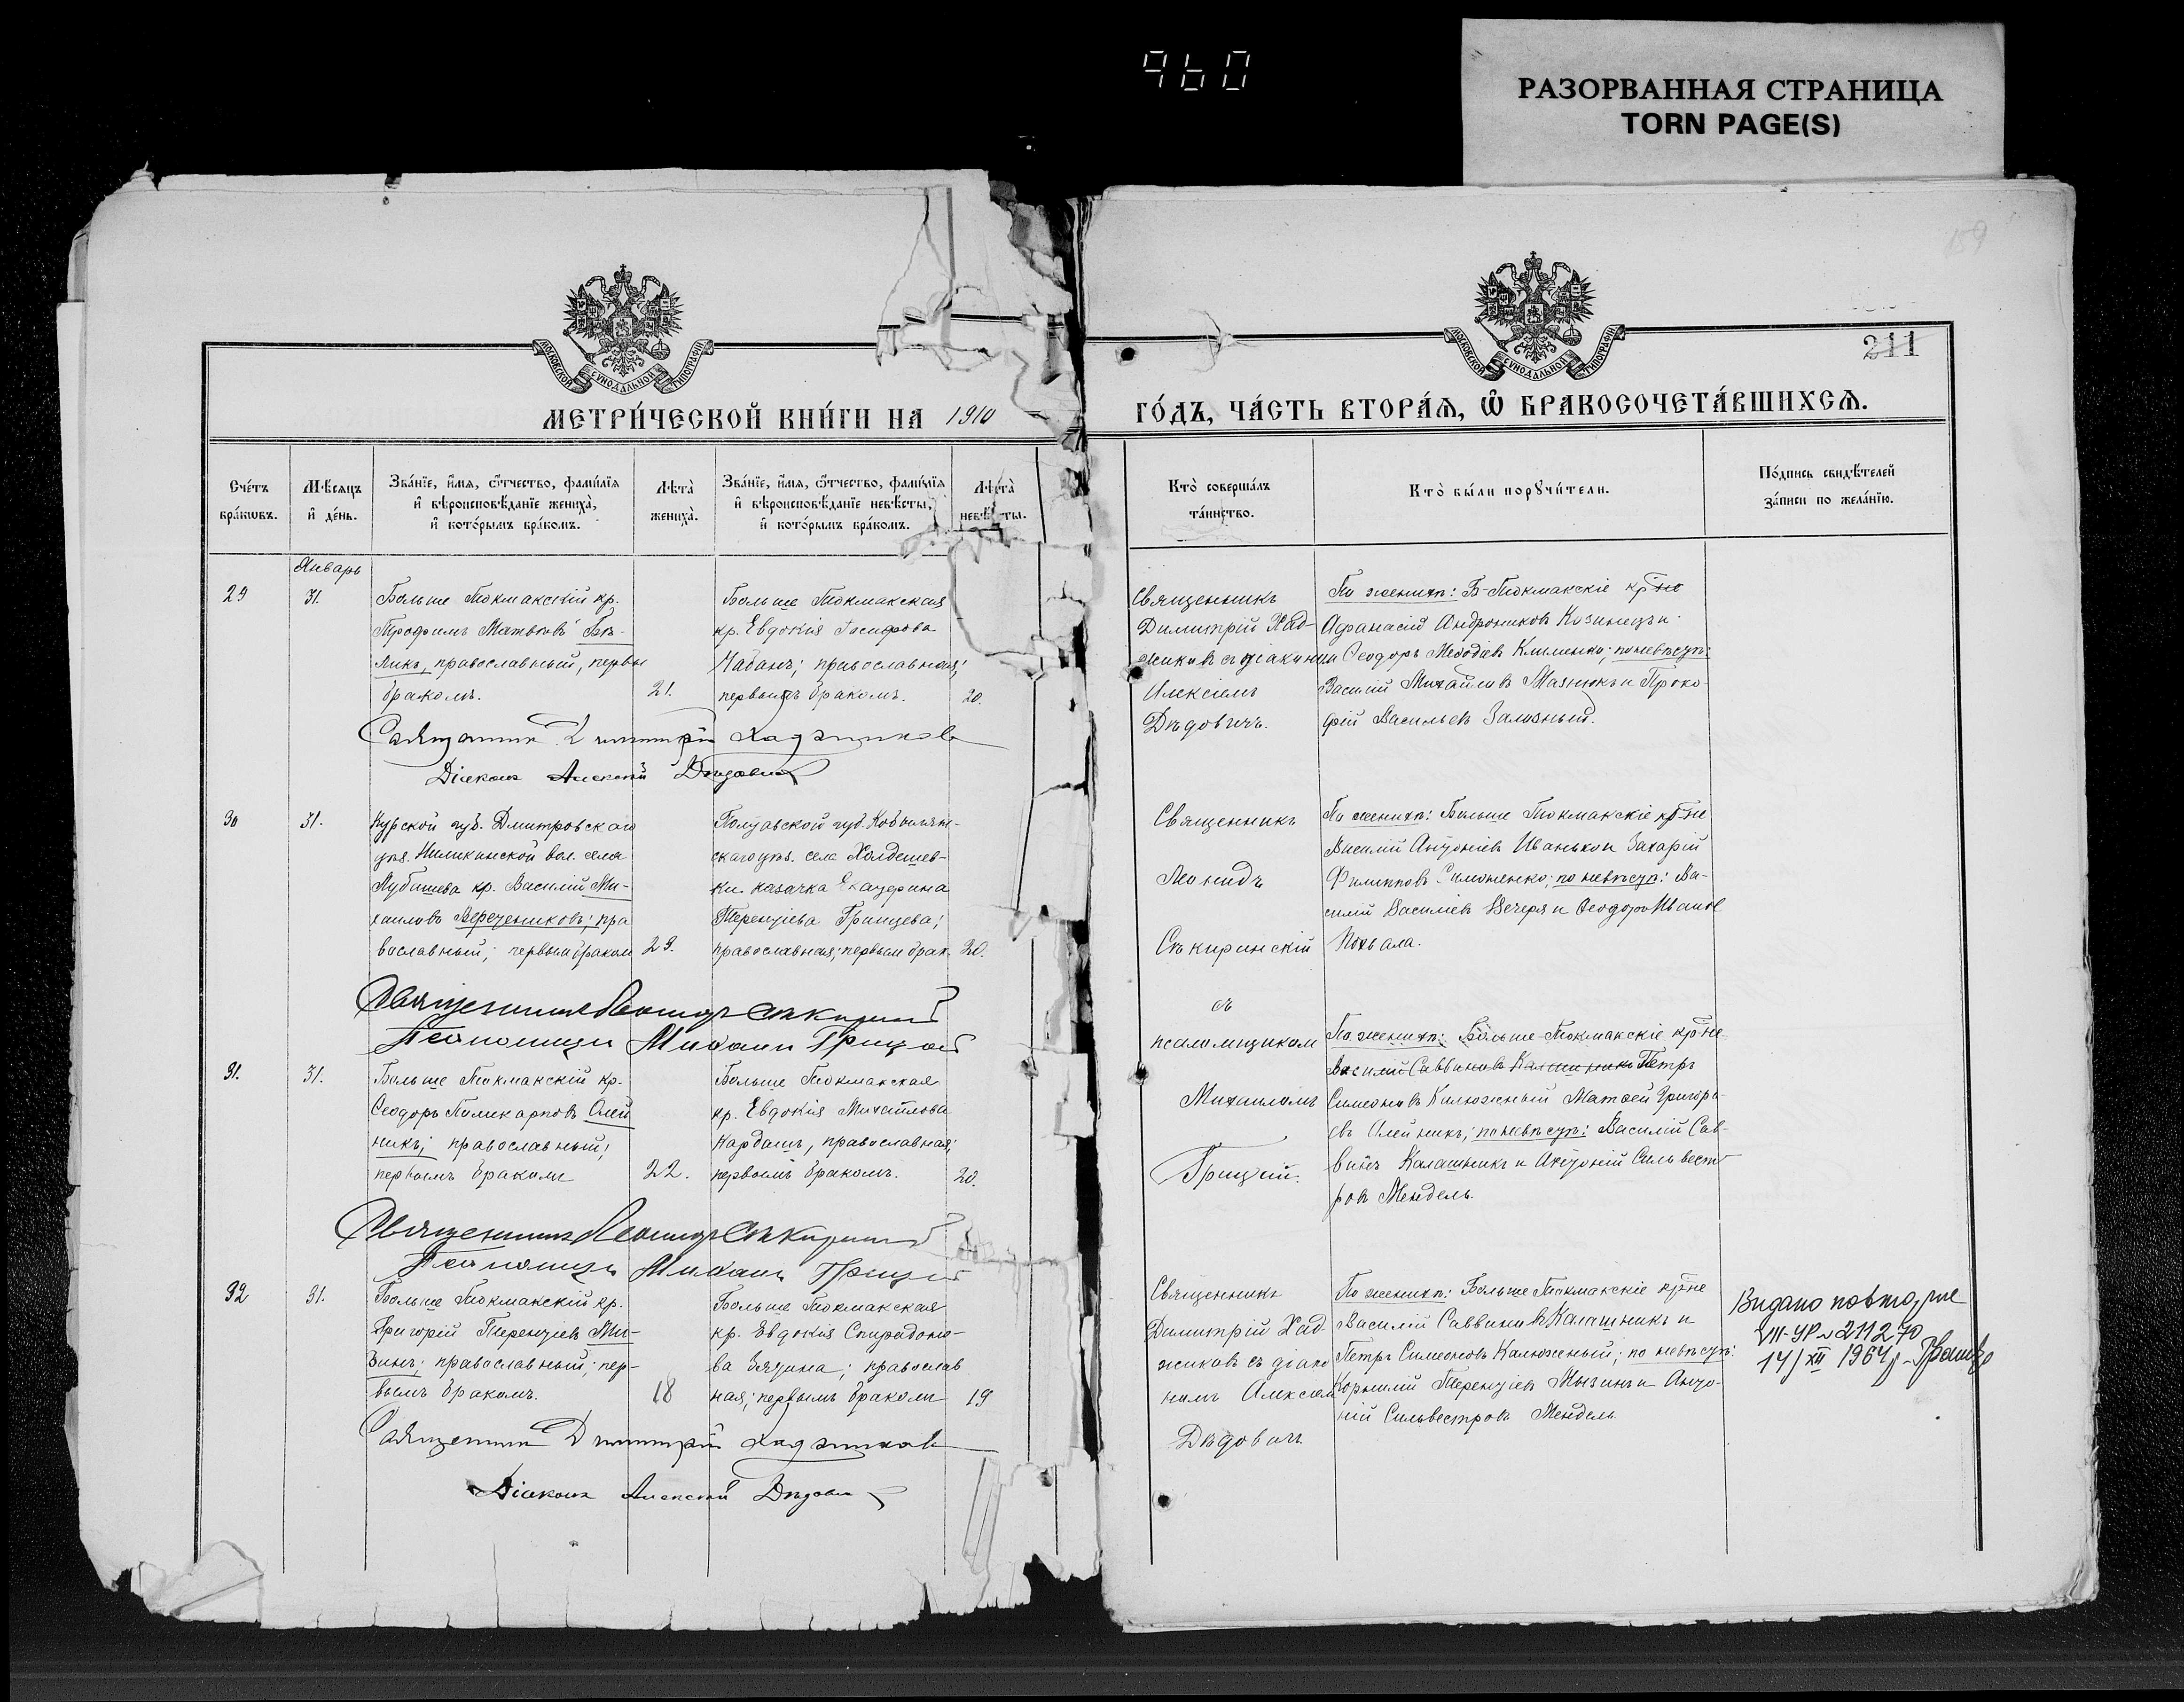 960
РАЗОРВАННАЯ СТРАНИЦА
TORN PAGE(S)
159
211
МОСКОВСКОЙ СѴНОДАЛЬНОЙ ТИПОГРАФІИ
МОСКОВСКОЙ СѴНОДАЛЬНОЙ ТИПОГРАФІИ
МЕТРИ́ЧЕСКОЙ КНИ́ГИ НА 1910
ГО́ДЪ, ЧА́СТЬ ВТОРА́Ѧ, Ѽ БРАКОСОЧЕТА́ВШИХСѦ.
Сче́тъ
бра́ковъ.
Мѣ́сяцъ
и҆ де́нь.
Зва́нїе, и҆́мя, ѻ҆́тчество, фами́лїя
и҆ вѣроисповѣ́данїе жениха̀,
и҆ кото́рымъ бра́комъ.
Лѣта̀
жениха̀.
Зва́нїе, и҆́мя, ѻ҆́тчество, фами́лїя
и҆ вѣроисповѣ́данїе невѣ́сты,
и҆ кото́рымъ бра́комъ.
Лѣта̀
невѣ́сты.
Кто̀ соверша́лъ
та́инство.
Кто̀ бы́ли порꙋчи́тели.
По́дпись свидѣ́телей
за́писи по жела́нїю.
Январь
29
31.
Больше Токмакскій кр.
Трофимъ Матѳіевъ Бѣ-
ликъ, православный, первы
бракомъ.
21.
Больше Токмакская
кр. Евдокія Іосифова
православная;
первымъ бракомъ.
20.
Священникъ
Димитрій Хад-
жиковъ съ діакономъ
Алексіемъ
Дѣдовичъ.
По женихѣ: Б-Токмакскіе кр-не
Аѳанасій Андрониковъ Козинецъ и
Ѳеодоръ Меѳодіевъ Клименко; по невѣстѣ:
Василій Михайловъ Мазнюкъ и Проко-
фій Васильевъ Зализный.
Священникъ Димитрій Хаджиковъ
Діаконъ Алексій Дѣдовичъ
30
31.
Курской губ. Дмитровскаго
уѣз. вол. села
кр. Василій Ми-
хаиловъ Веретенниковъ; пра
вославный; первым браком
29.
Полтавской губ. Кобеляк-
скаго уѣз. села
ки казачка Екатерина
Терентіева Гринцева;
православная; первым брак.
20.
Священникъ
Леонидъ
Сѣкиринскій
съ
псаломщиком
Михаиломъ
Грицай.
По женихѣ: Больше Токмакскіе кр-не
Василій Антоніевъ Иванько и Захарій
Филипповъ Симоненко; по невѣстѣ: Ва-
силій Василіевъ Вечеря и Ѳеодоръ Иванов
Похвала.
Священникъ Леонидъ Сѣкиринскій
Псаломщикъ Михаилъ Грицай
31.
31.
Больше Токмакскій кр.
Ѳеодоръ Поликарповъ Олей
никъ; православный;
первымъ браком
22.
Больше Токмакская
кр. Евдокія Михайлова
Кардашъ, православная;
первымъ бракомъ.
20.
По женихѣ: Больше-Токмакскіе кр-не
Василій Саввиновъ Калашникъ Петръ
Симеоновъ Калюжный Матѳей Григорі-
евъ Олейникъ; по невѣстѣ: Василій Сав-
винъ Калашникъ и Антоній Сильвест
ровъ Мендель.
Священникъ Леонидъ Сѣкиринскій
Псаломщикъ Михаилъ Грицай
32
31.
Больше Токмакскій кр.
Григорій Терентіевъ Мы-
зинъ; православный; пер-
вымъ бракомъ.
18
Больше Токмакская
кр. Евдокія Спиридоно-
ва православ
ная; первымъ браком
19
Священникъ
Димитрій Хад
жиковъ съ діако
номъ Алексіем
Дѣдовичъ
По женихѣ: Больше Токмакскіе кр-не
Василій Саввинъ Калашникъ и
Петръ Симеоновъ Калюжный; по невѣстѣ:
Корнилій Терентіевъ Мызинъ и Анто-
ній Сильвестровъ Мендель.
Видано повторне
VII-УР № 211270
14/XII 1964 р.
Священникъ Димитрій Хаджиковъ
Діаконъ Алексій Дѣдовичъ